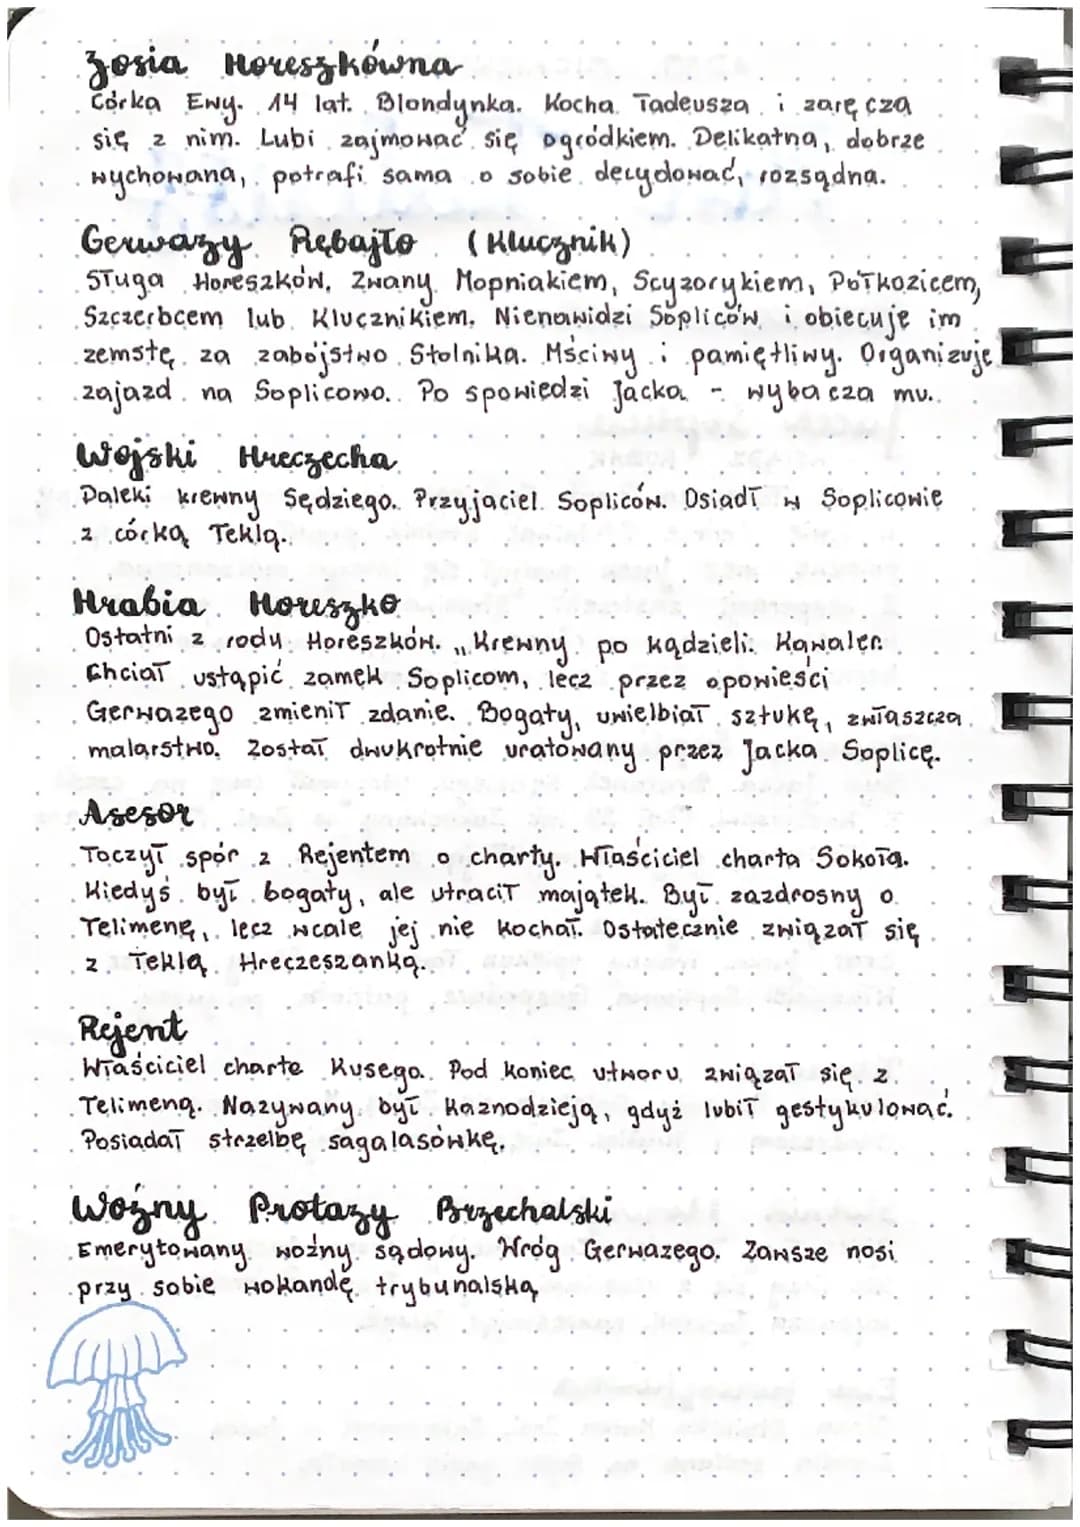 Zosia Horeszkówna
Córka Ewy. 14 lat. Blondynka. Kocha Tadeusza i zaręcza
się z nim. Lubi zajmować się ogródkiem. Delikatna, dobrze
wychowana, potrafi sama o sobie decydować, rozsądna.
Gerwazy Rębajło (Klucznik)
Sługa Horeszków. Zwany Mopniakiem, Scyzorykiem, Półkozicem,
Szczerbcem lub Klucznikiem. Nienawidzi Sopliców i obiecuje im
zemstę za zabójstwo Stolnika. Mściwy i pamiętliwy. Organizuje
zajazd na Soplicowo. Po spowiedzi Jacka - wybacza mu.
Wojski Hreczecha
Daleki krewny Sędziego. Przyjaciel Sopliców. Osiadł w Soplicowie
z córką Teklą.
Hrabia Horeszko
Ostatni z rodu Horeszków. „Krewny po kądzieli". Kawaler.
Chciał ustąpić zamek Soplicom, lecz przez opowieści
Gerwazego zmienił zdanie. Bogaty, uwielbiał sztukę, zwłaszcza
malarstwo. Został dwukrotnie uratowany przez Jacka Soplicę.
Asesor
Toczył spór z Rejentem o charty. Właściciel charta Sokoła.
Kiedyś był bogaty, ale utracił majątek. Był zazdrosny o
Telimenę, lecz wcale jej nie kochał. Ostatecznie związał się
z Teklą Hreczeszanką.
Rejent
Właściciel charta Kusego. Pod koniec utworu związał się z
Telimeną. Nazywany był kaznodzieją, gdyż lubił gestykulować.
Posiadał strzelbę sagalasówkę.
Woźny Protazy Brzechalski
Emerytowany woźny sądowy. Wróg Gerwazego. Zawsze nosi
przy sobie wokandę trybunalską